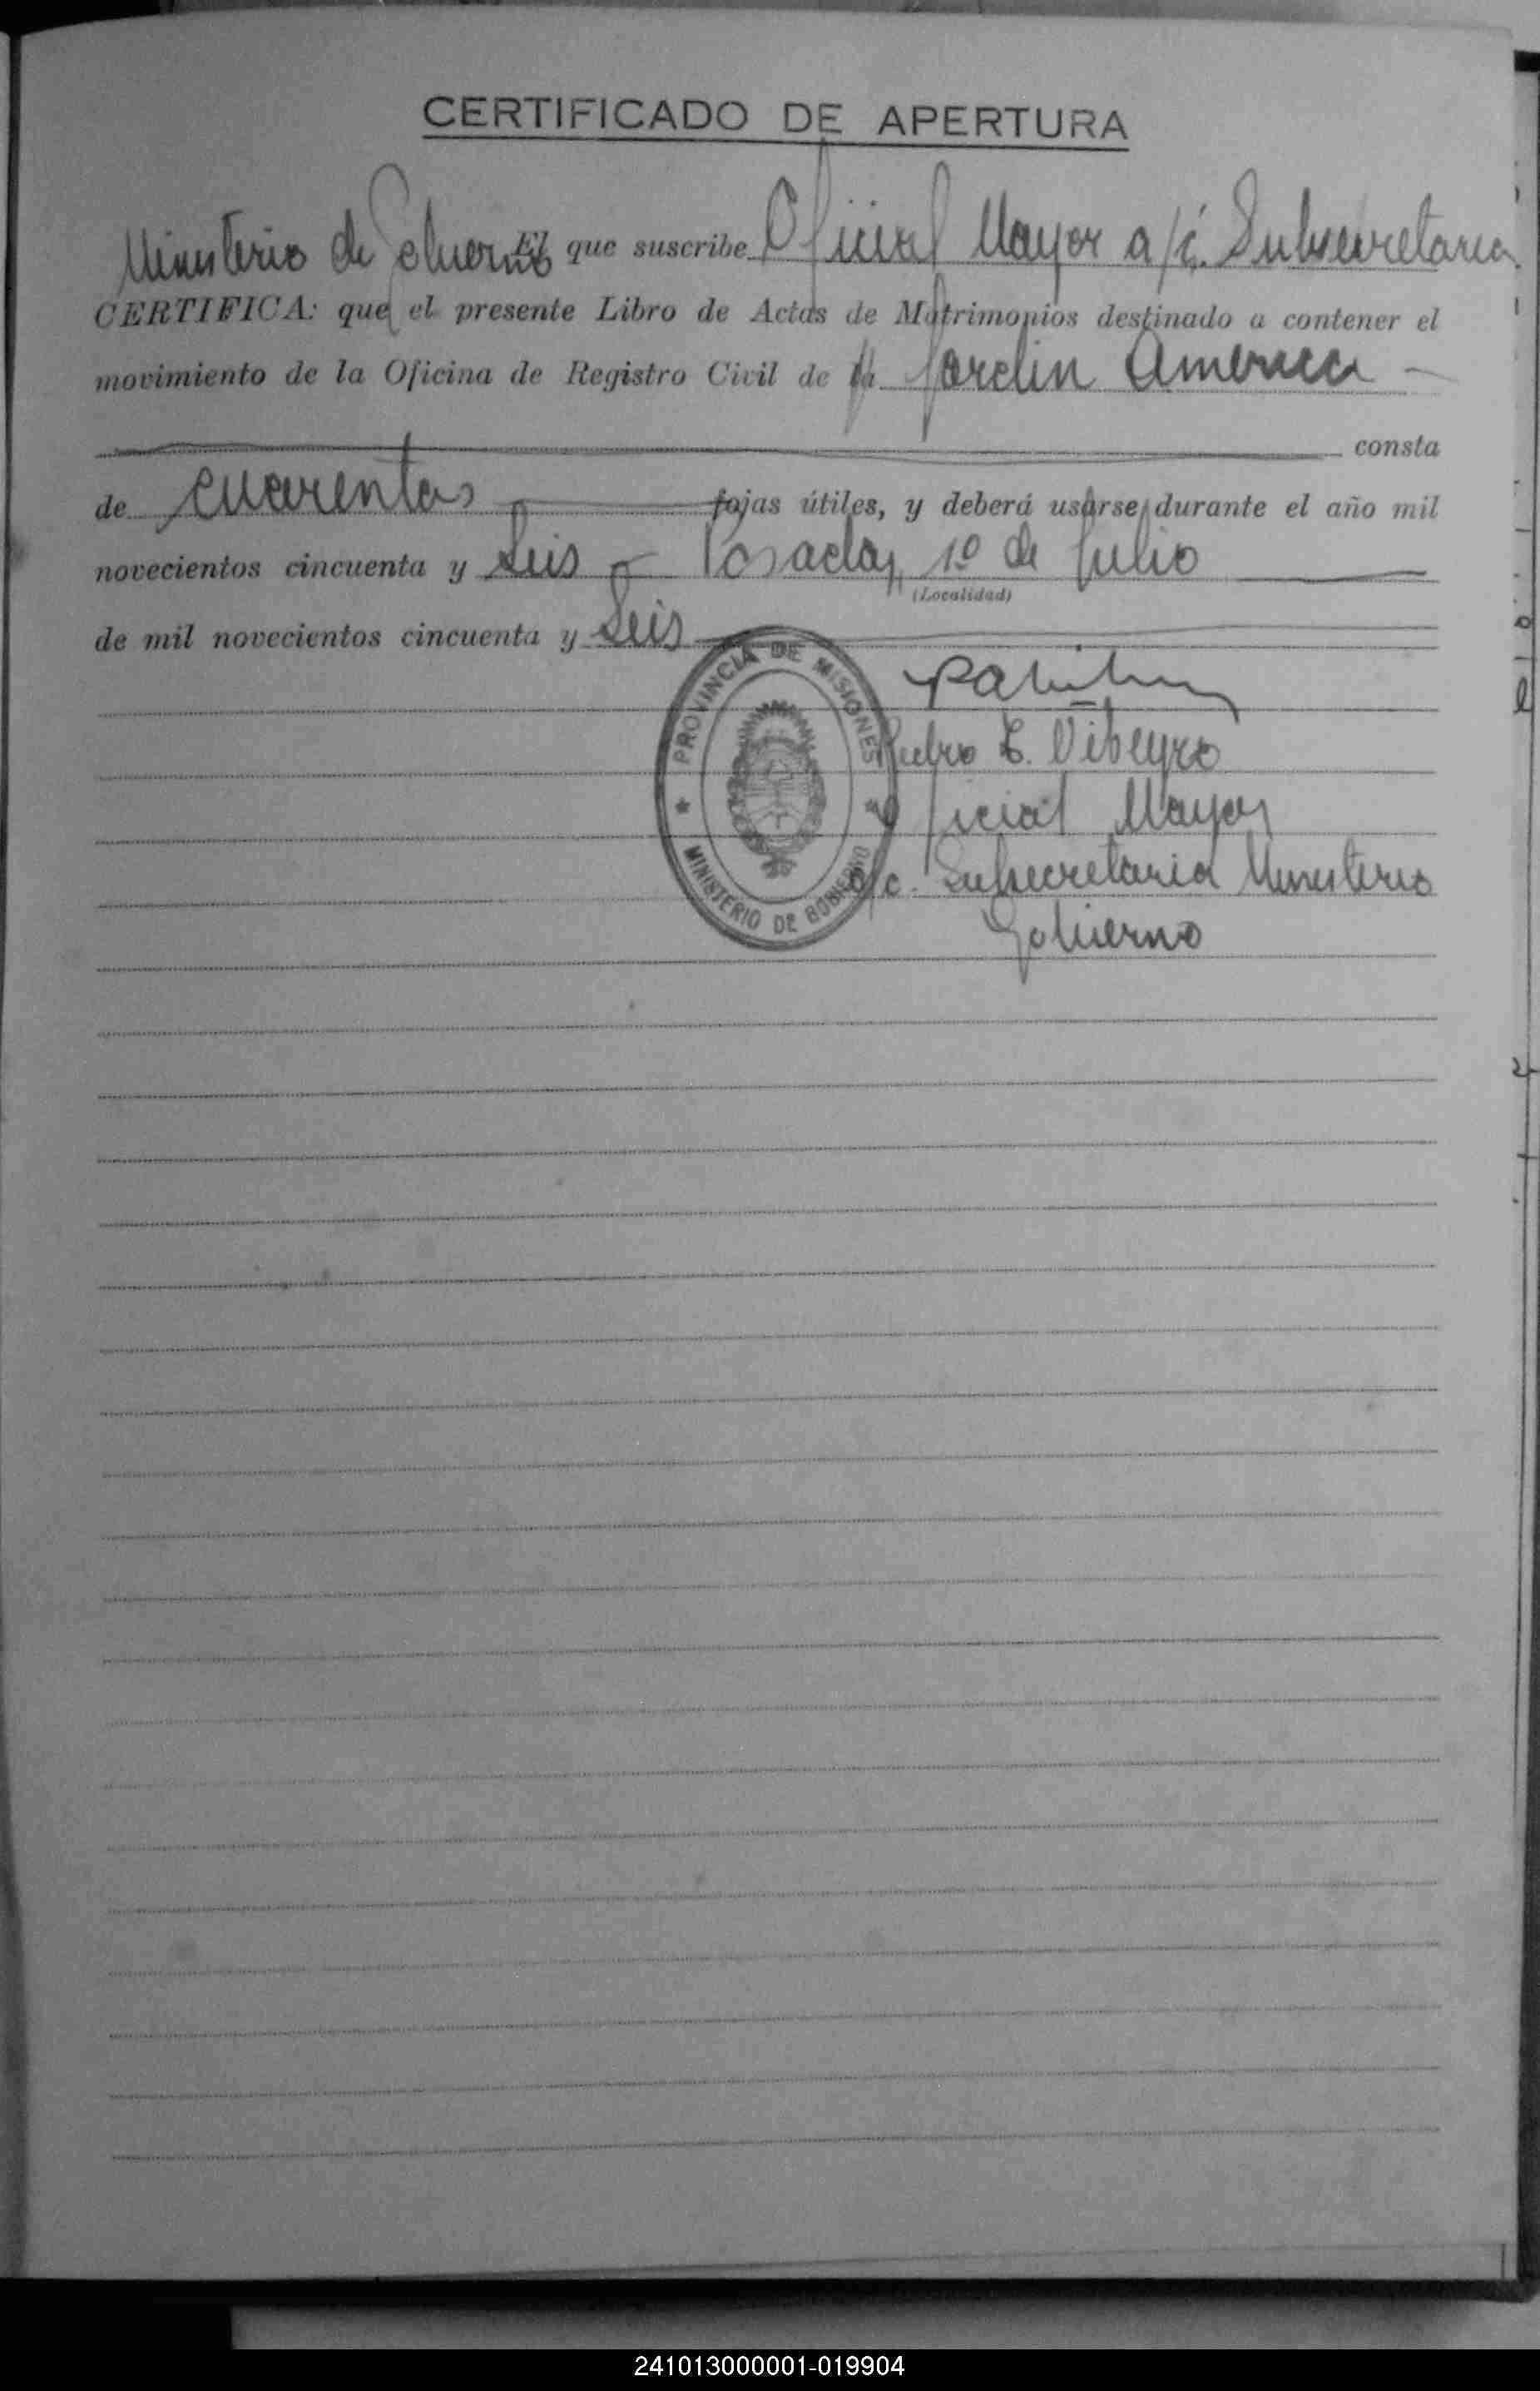 CERTIFICADO DE APERTURA
Ministerio de Gobierno El que suscribe Oficial Mayor a/c. Subsecretaria
CERTIFICA: que el presente Libro de Actas de Matrimonios destinado a contener el
movimiento de la Oficina de Registro Civil de Jardin America
consta
de cuarenta fojas útiles, y deberá usarse durante el año mil
novecientos cincuenta y Seis Posadas, 1º de Julio
(Localidad)
de mil novecientos cincuenta y Seis
PROVINCIA DE MISIONES
MINISTERIO DE GOBIERNO
Pedro
Oficial Mayor
a/c. Subsecretaria Ministerio
Gobierno
241013000001-019904